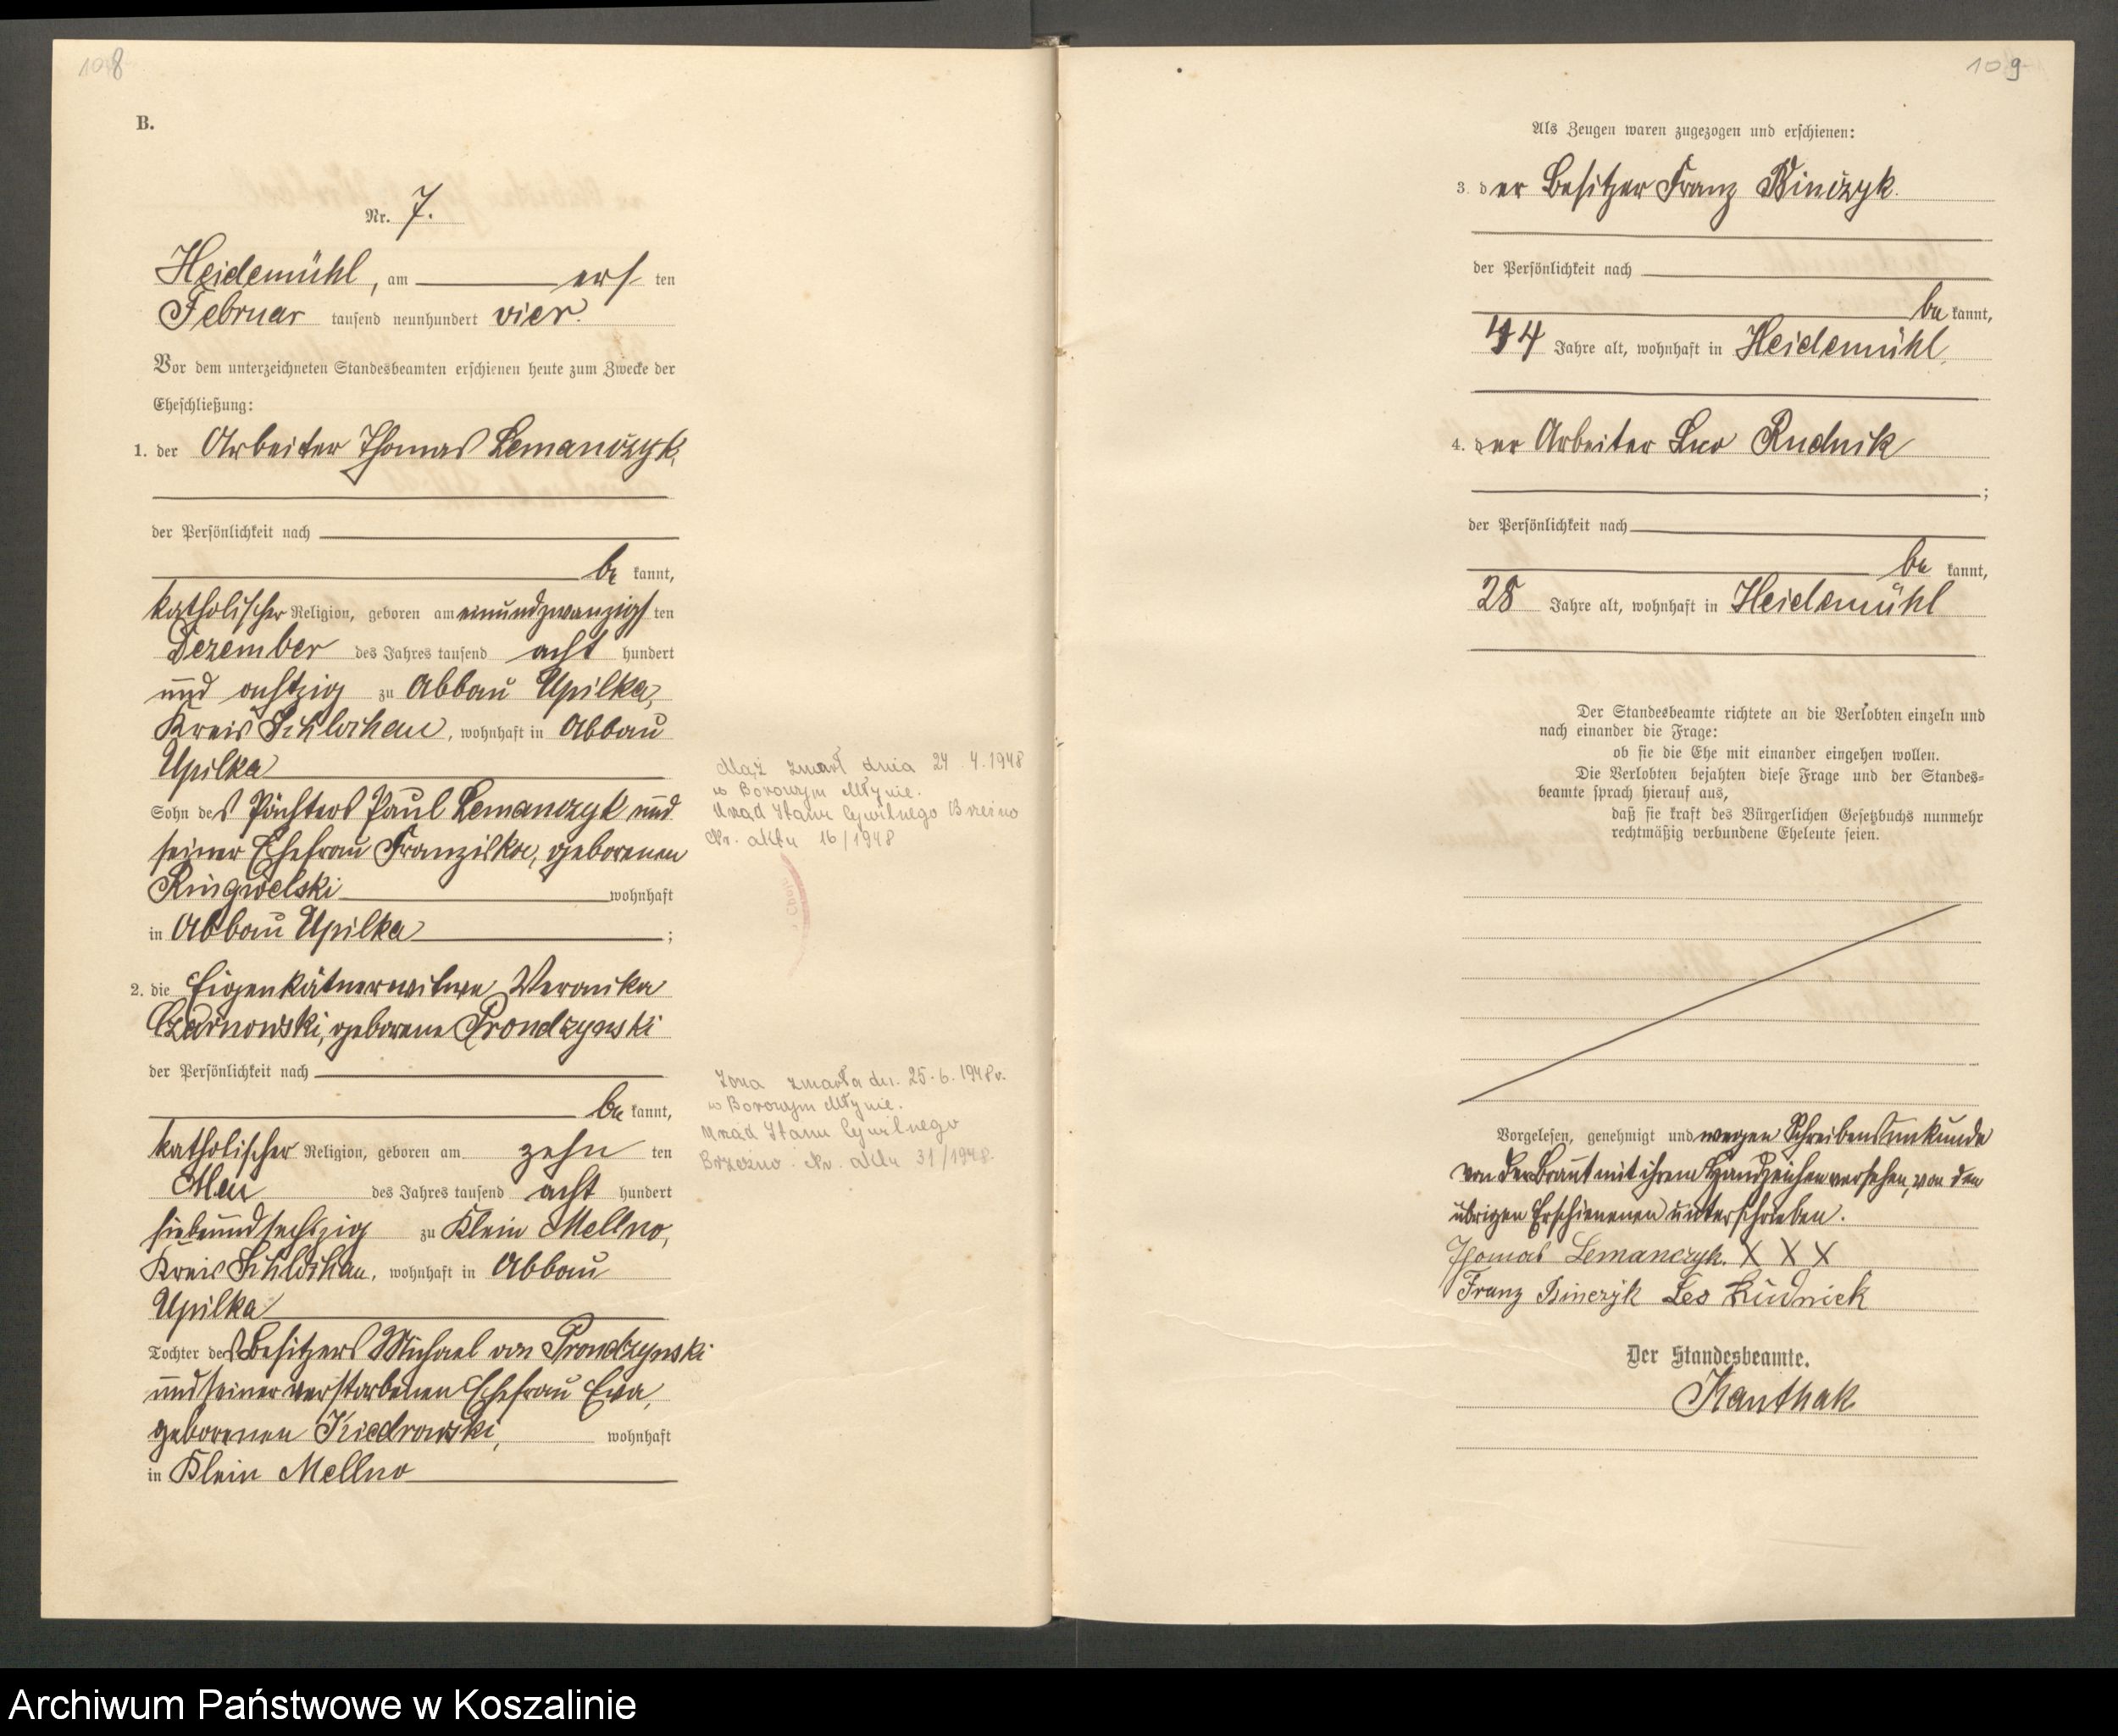 108
B.
Nr. 7.
Heidemühl, am erſ ten
Februar tauſend neunhundert vier.
Vor dem unterzeichneten Standesbeamten erſchienen heute zum Zwecke der
Eheſchließung:
1. der Arbeiter Thomas Lemanczyk,
der Perſönlichkeit nach
be kannt,
katholiſcher Religion, geboren am einundzwanzigſ ten
Dezember des Jahres tauſend acht hundert
und achtzig zu Abbau Upilka,
Kreis Schlochau, wohnhaft in Abbau
Upilka
Sohn des Pächters Paul Lemanczyk und
ſeiner Ehefrau Franziska, geborenen
Ringwelski wohnhaft
in Abbau Upilka ;
2. die Eigenkätnerwitwe Veronika
Czarnowski, geborene Prondzynski
der Perſönlichkeit nach
be kannt,
katholiſcher Religion, geboren am zehn ten
Mai des Jahres tauſend acht hundert
ſiebenundſechszig zu Klein Mellno,
Kreis Schlochau, wohnhaft in Abbau
Upilka
Tochter des Beſitzers Michael von Prondzynski
und ſeiner verſtorbenen Ehefrau Eva,
geborenen Kiedrowski, wohnhaft
in Klein Mellno
Mąż zmarł dnia 24.4.1948
w Borowym Młynie.
Urząd Stanu Cywilnego Brzeźno
Nr. aktu 16/1948
Żona zmarła dn. 25.6.1948 r.
w Borowym Młynie.
Urząd Stanu Cywilnego
Brzeźno. Nr. aktu 31/1948.
109
Als Zeugen waren zugezogen und erſchienen:
3. der Beſitzer Franz Binczyk.
der Perſönlichkeit nach
be kannt,
44 Jahre alt, wohnhaft in Heidemühl,
4. der Arbeiter Leo Rudnik
;
der Perſönlichkeit nach
be kannt,
28 Jahre alt, wohnhaft in Heidemühl
Der Standesbeamte richtete an die Verlobten einzeln und
nach einander die Frage:
ob ſie die Ehe mit einander eingehen wollen.
Die Verlobten bejahten dieſe Frage und der Standes-
beamte ſprach hierauf aus,
daß ſie kraft des Bürgerlichen Geſetzbuchs nunmehr
rechtmäßig verbundene Eheleute ſeien.
Vorgeleſen, genehmigt und wegen Schreibensunkunde
von der Braut mit ihrem Handzeichen verſehen, von den
übrigen Erſchienenen unterſchrieben.
Thomas Lemanczyk. X X X
Franz Binczyk Leo Rudnick
Der Standesbeamte.
Kanthak
Archiwum Państwowe w Koszalinie